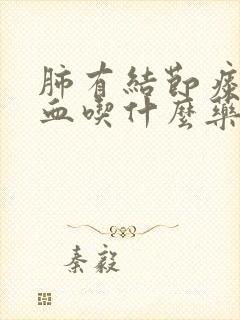 肺有結節痰
血喫什麼藥
秦毅